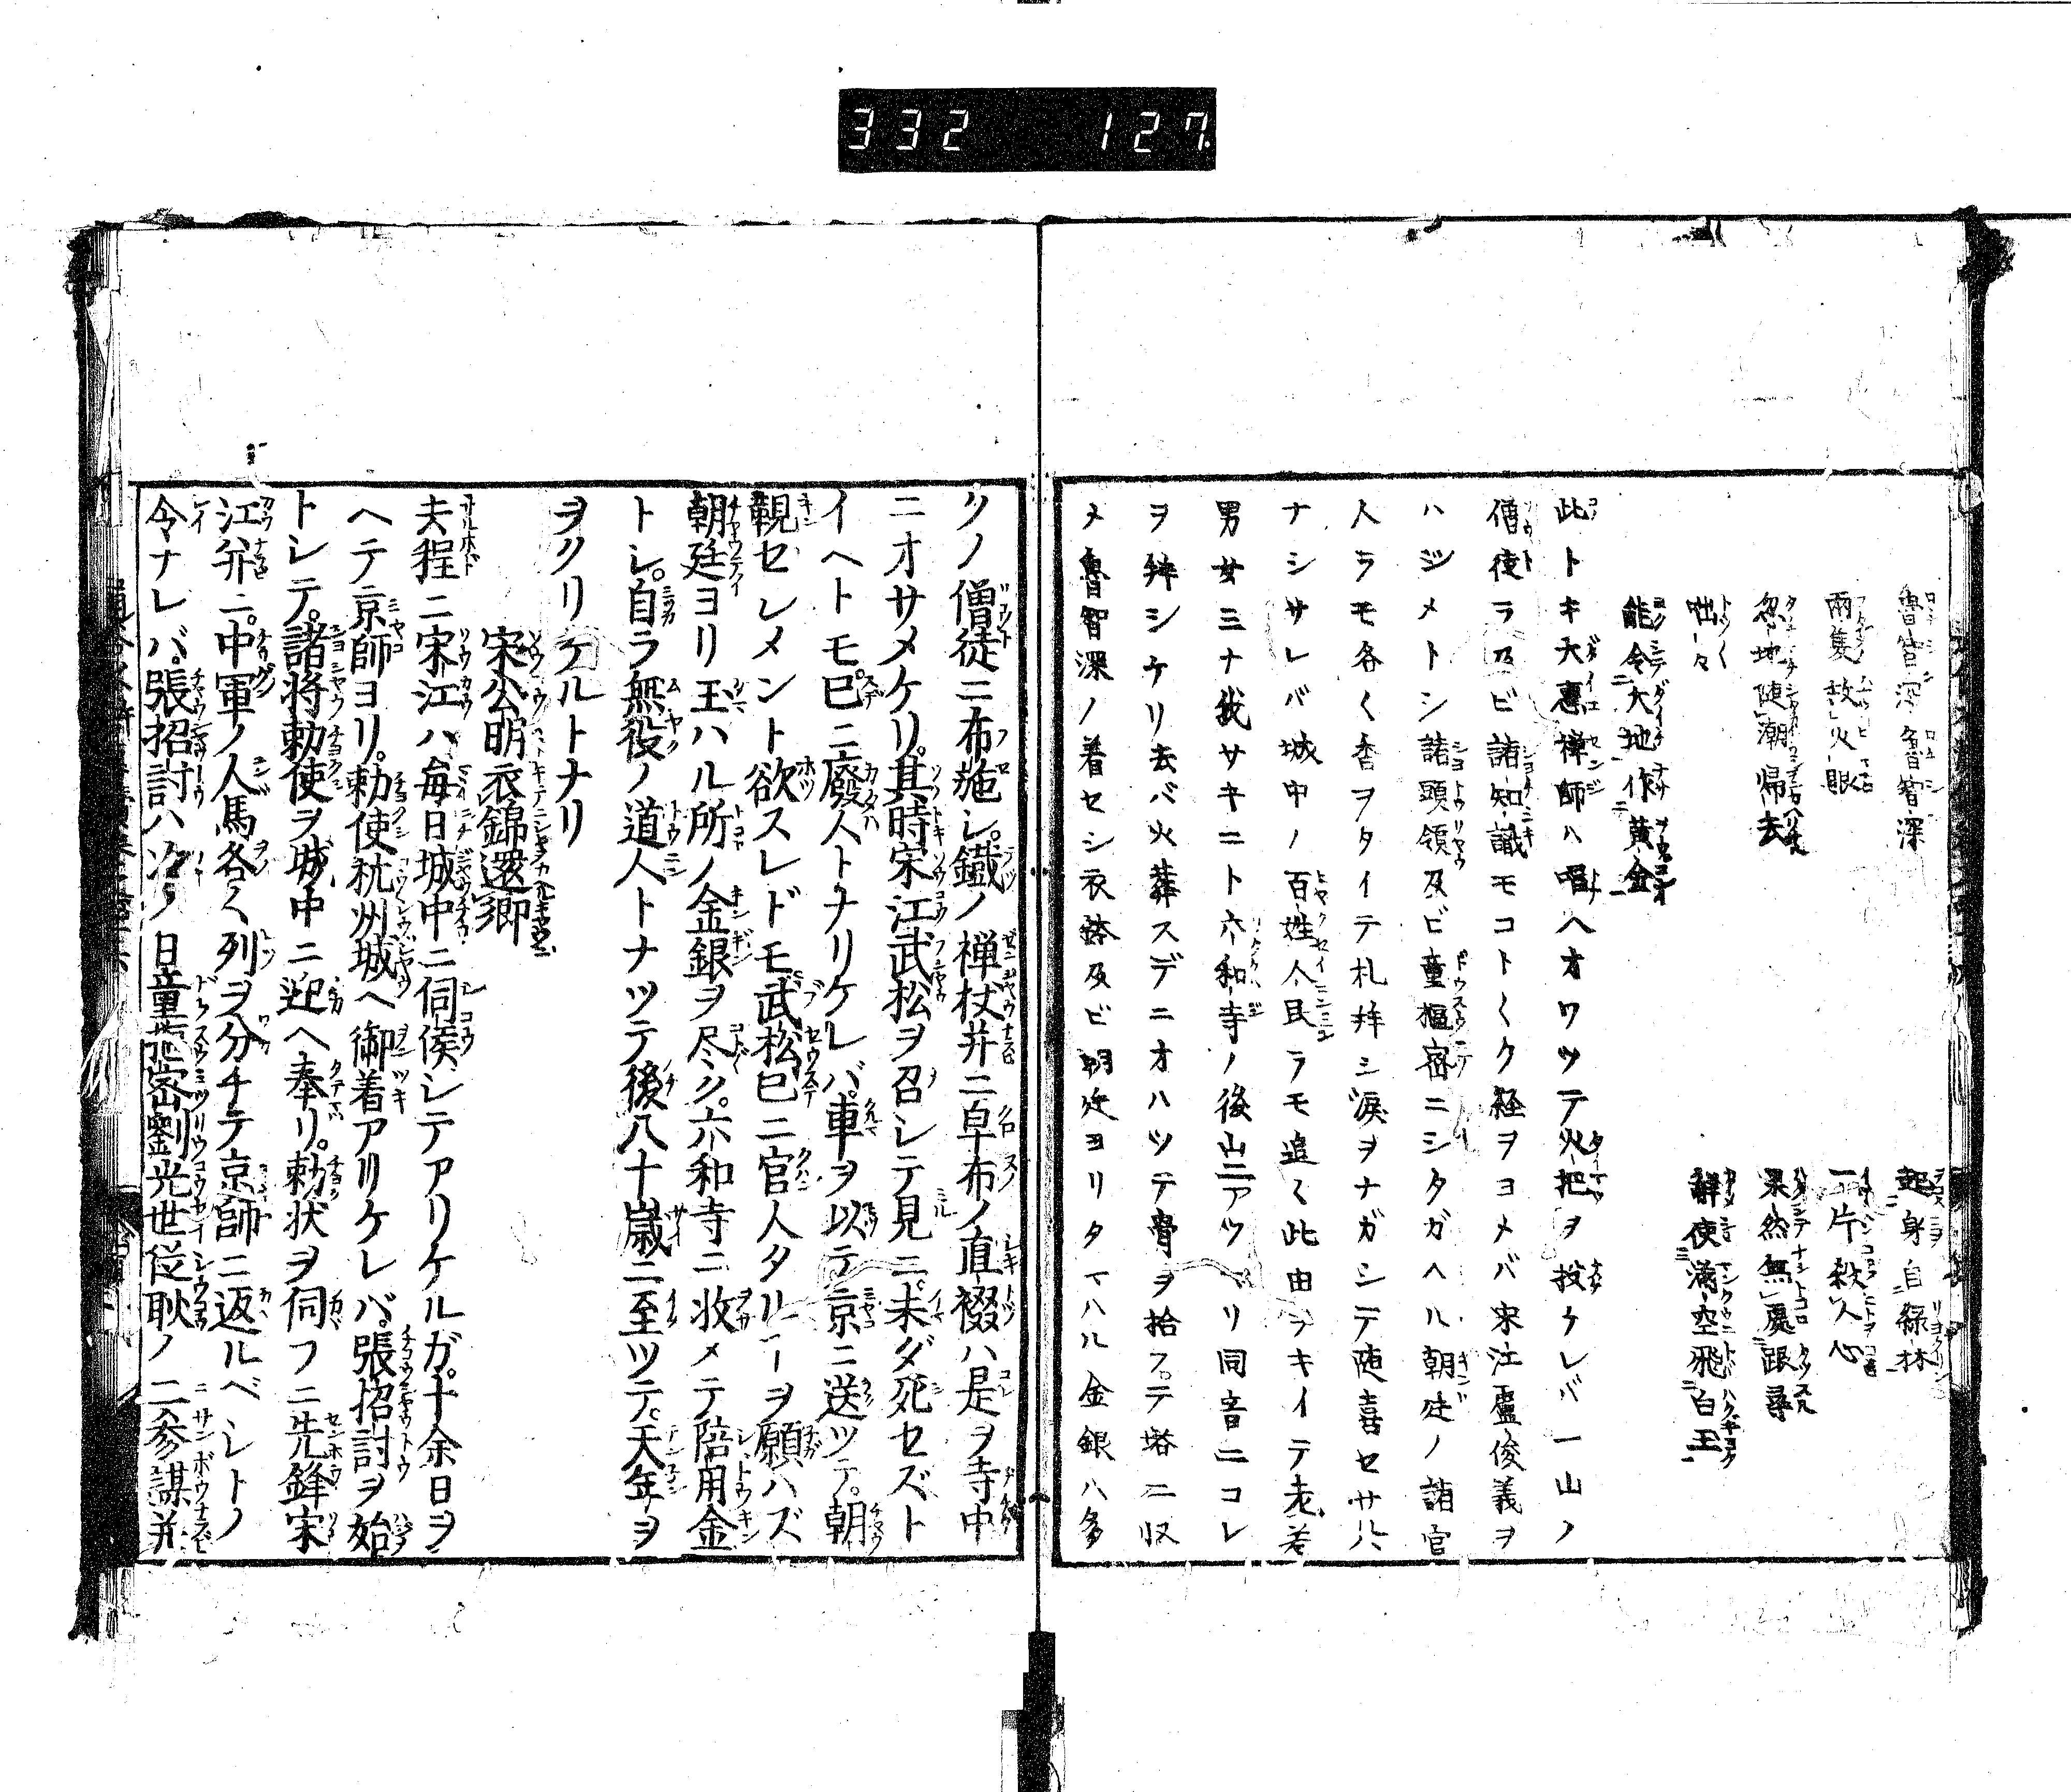 332 127
魯智深魯智深 起身自緑林
両隻放火眼 一片殺人心
忽地随潮帰去 果然無処跟尋
咄々 解使満空飛白玉
能令大地作黄金
此トキ大恵禅師ハ唱ヘオワツテ火把ヲ投ケレバ一山ノ
僧徒ラ及ビ諸知識モコト〱ク経ヲヨメバ宋江盧俊義ヲ
ハジメトシ諸頭領及ビ童枢密ニシタガヘル朝廷ノ諸官
人ラモ各〱香ヲタイテ礼拝シ涙ヲナガシテ随喜セサルハ
ナシサレバ城中ノ百姓人民ラモ追〻此由ヲキイテ老若
男女ミナ我サキニト六和寺ノ後山ニアツマリ同音ニコレ
ヲ拝シケリ去バ火葬スデニオハツテ骨ヲ拾フテ塔ニ収
メ魯智深ノ着セシ衣鉢及ビ朝廷ヨリタマハル金銀ハ多
クノ僧徒ニ布施シ。鐵ノ禅杖并ニ皁布ノ直裰ハ是ヲ寺中
ニオサメケリ。其時宋江武松ヲ召シテ見ニ。未ダ死セズト
イヘトモ。已ニ廢人トナリケレバ。車ヲ以テ京ニ送ツテ。朝
覲セシメント欲スレドモ。武松已ニ官人タルヿヲ願ハズ
朝廷ヨリ玉ハル所ノ金銀ヲ尽ク。六和寺ニ收メテ陪用金
トシ。自ラ無役ノ道人トナツテ後八十歳ニ至ツテ。天年ヲ
ヲクリケルトナリ
宋公明衣錦還郷
夫程ニ宋江ハ毎日城中ニ伺候シテアリケルガ。十余日ヲ
ヘテ京師ヨリ。勅使杭州城ヘ御着アリケレバ。張招討ヲ始
トシテ。諸将勅使ヲ城中ニ迎ヘ奉リ。勅状ヲ伺フニ先鋒宋
江并ニ。中軍ノ人馬各〱列ヲ分チテ京師ニ返ルベシトノ
令ナレバ。張招討ハ次ノ日童枢密劉光世従耿ノ二参謀并